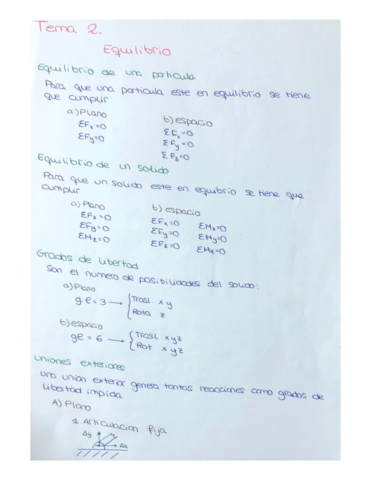 Tema 2.
Equilibrio
Equilibrio de una particula
Para que una particula este en equilibrio se tiene
que cumplir
a) Plano
b) espacio
ΣFx=0
ΣFy=0
ΣFx=0
ΣFy=0
ΣFz=0
Equilibrio de un solido
Para que un solido este en equibrio se tiene que
cumplir
a) Plano
b) espacio
ΣFx=0
ΣFy=0
ΣMz=0
ΣFx=0 ΣMx=0
ΣFy=0 ΣMy=0
ΣFz=0 ΣMz=0
Grados de libertad
Son el numero de posibilidades del solido:
a) Plano
gl = 3 → { Trasl x y
Rota z
b) espacio
gl = 6 → { Trasl x y z
Rot x y z
Uniones exteriores
Una union exterior genera tantas reacciones como grados de
libertad impida.
A) Plano
1. Articulacion fija
Δy
Δx